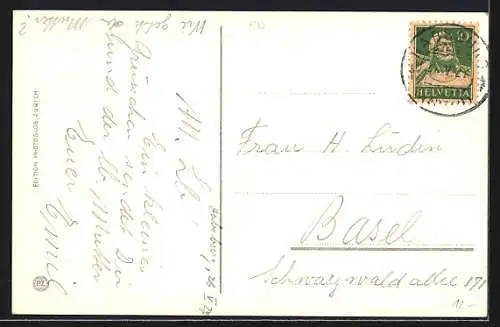 Wie geht's
Mutter?
All. Lb.
Ein kleines
Grüsschen sendet Dir
und der lb. Mutter
Euer Emil
EDITION PHOTOGLOB, ZÜRICH
PZ
10
HELVETIA
Frau H. Lüdin
Basel
Schwarzwaldallee 171
12.-